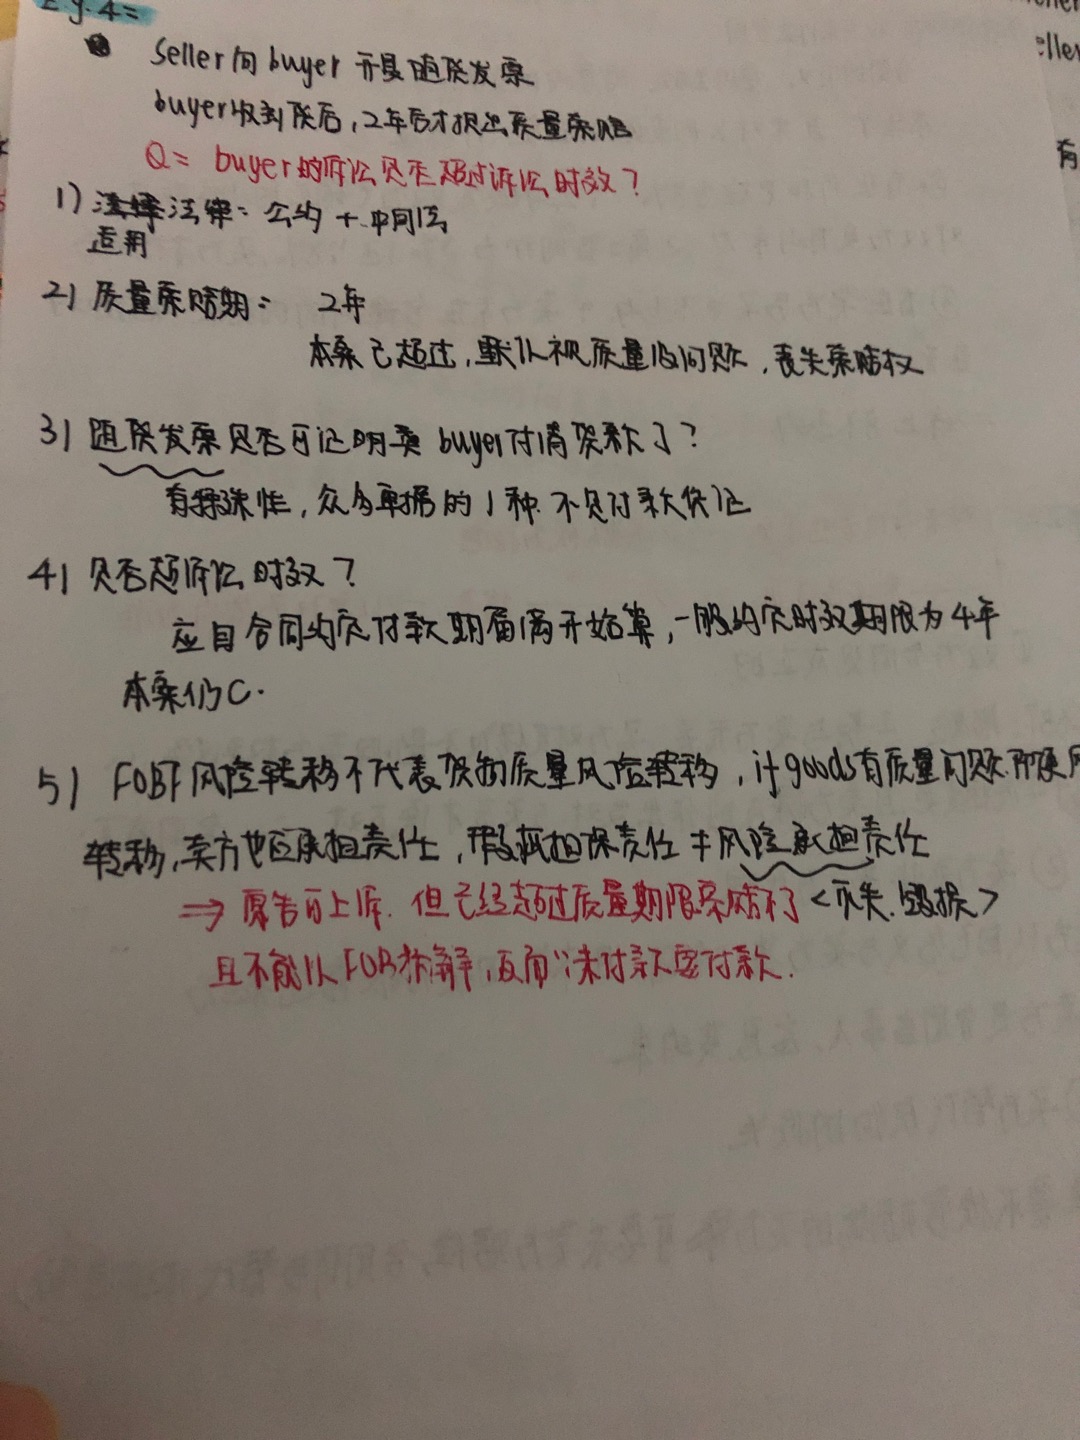 E.g.4=
Seller向buyer开具随货发票
buyer收到货后,2年后才提出质量索赔
Q= buyer的诉讼是否超过诉讼时效?
1) 法律= 公约 + 中国法
适用
2) 质量索赔期: 2年
本案已超过,默认视质量没问题,丧失索赔权
3) 随货发票是否可证明卖buyer付清货款了?
有特殊性,众多单据的1种.不是付款凭证
4) 是否超诉讼时效?
应自合同约定付款期届满开始算,一般约定时效期限为4年
本案仍C.
5) FOBF风险转移不代表货物质量风险转移,if goods有质量问题.即便风
转移,卖方也应承担责任,瑕疵担保责任≠风险承担责任
⇒ 原告可上诉.但已经超过质量期限索赔不了<灭失.毁损>
且不能以FOB拆解,反而∵未付款需付款.
eller
有